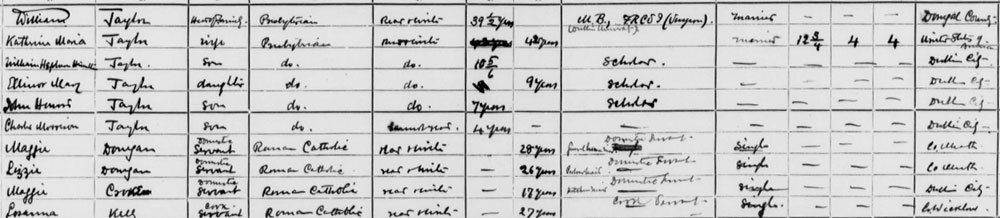 William Taylor Head of Family Presbyterian Read & write 39 1/2 years — M.B., FRCSI (Surgeon). Married Donegal County
Kathrine Maria Taylor Wife Presbyterian Read & write 42 years (Dublin University) — Married 12 3/4 4 4 United States of America
Taylor Son do. do. 10 5/6 — Scholar — — — — Dublin City
Elinor Mary Taylor daughter do. do. 9 years Scholar. — — — — Dublin City
John Taylor Son do. do. 7 years — Scholar — — — — Dublin City
Charles Morrison Taylor Son do. cannot read. 4 years — — — — — — Dublin City
Maggie Dongan Domestic Servant Roman Catholic read & write — 28 years Domestic Servt Single — — — Co Meath
Lizzie Dongan Domestic Servant Roman Catholic. read & write — 26 years Domestic Servt Single — — — Co Meath
Maggie Domestic Servant Roman Catholic read & write — 18 years Domestic Servt Single — — — Dublin City
Kelly Cook Servant Roman Catholic read & write — 27 years Cook Servant Single. — — — Co Wicklow